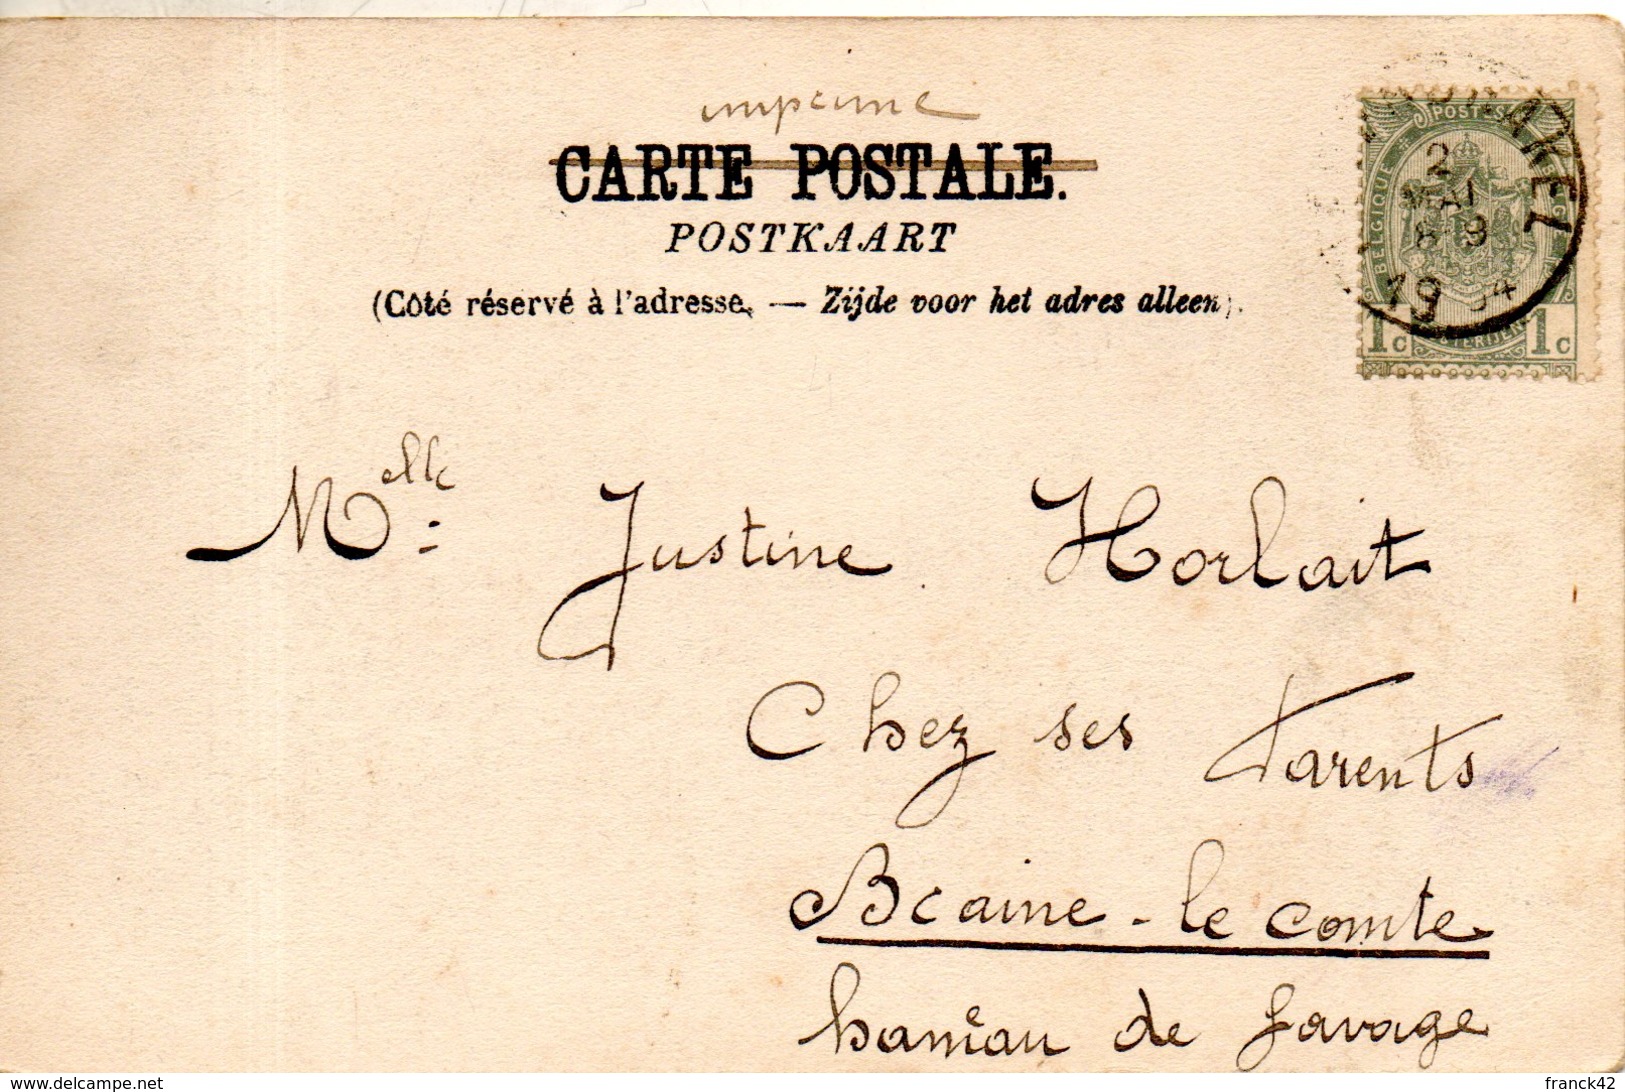 imprimé
CARTE POSTALE.
POSTKAART
(Côté réservé à l'adresse, — Zijde voor het adres alleen).
POSTES
BELGIQUE
2
MAI
8-9
19 04
1 c 1 c
Melle Justine Horlait
Chez ses Parents
Braine-le comte
hameau de Favage
delcampe.net
franck42